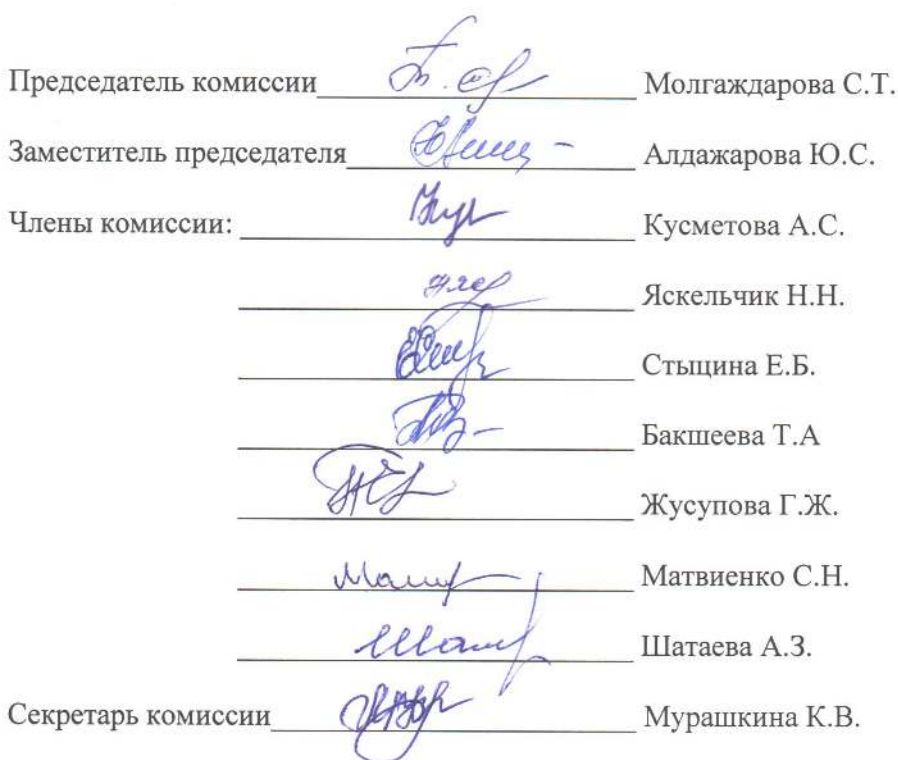 Председатель комиссии Молгаждарова С.Т.
Заместитель председателя Алдажарова Ю.С.
Члены комиссии: Кусметова А.С.
Яскельчик Н.Н.
Стыцина Е.Б.
Бакшеева Т.А
Жусупова Г.Ж.
Матвиенко С.Н.
Шатаева А.З.
Секретарь комиссии Мурашкина К.В.